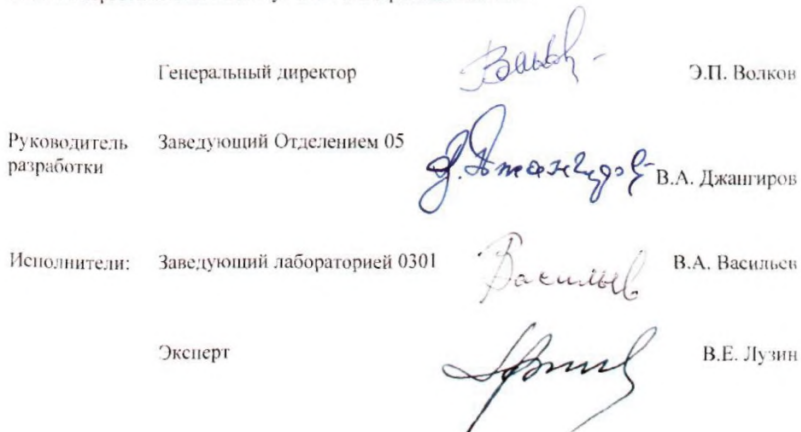 Генеральный директор Э.П. Волков
Руководитель разработки Заведующий Отделением 05 В.А. Джангиров
Исполнители: Заведующий лабораторией 0301 Васильев В.А. Васильев
Эксперт В.Е. Лузин